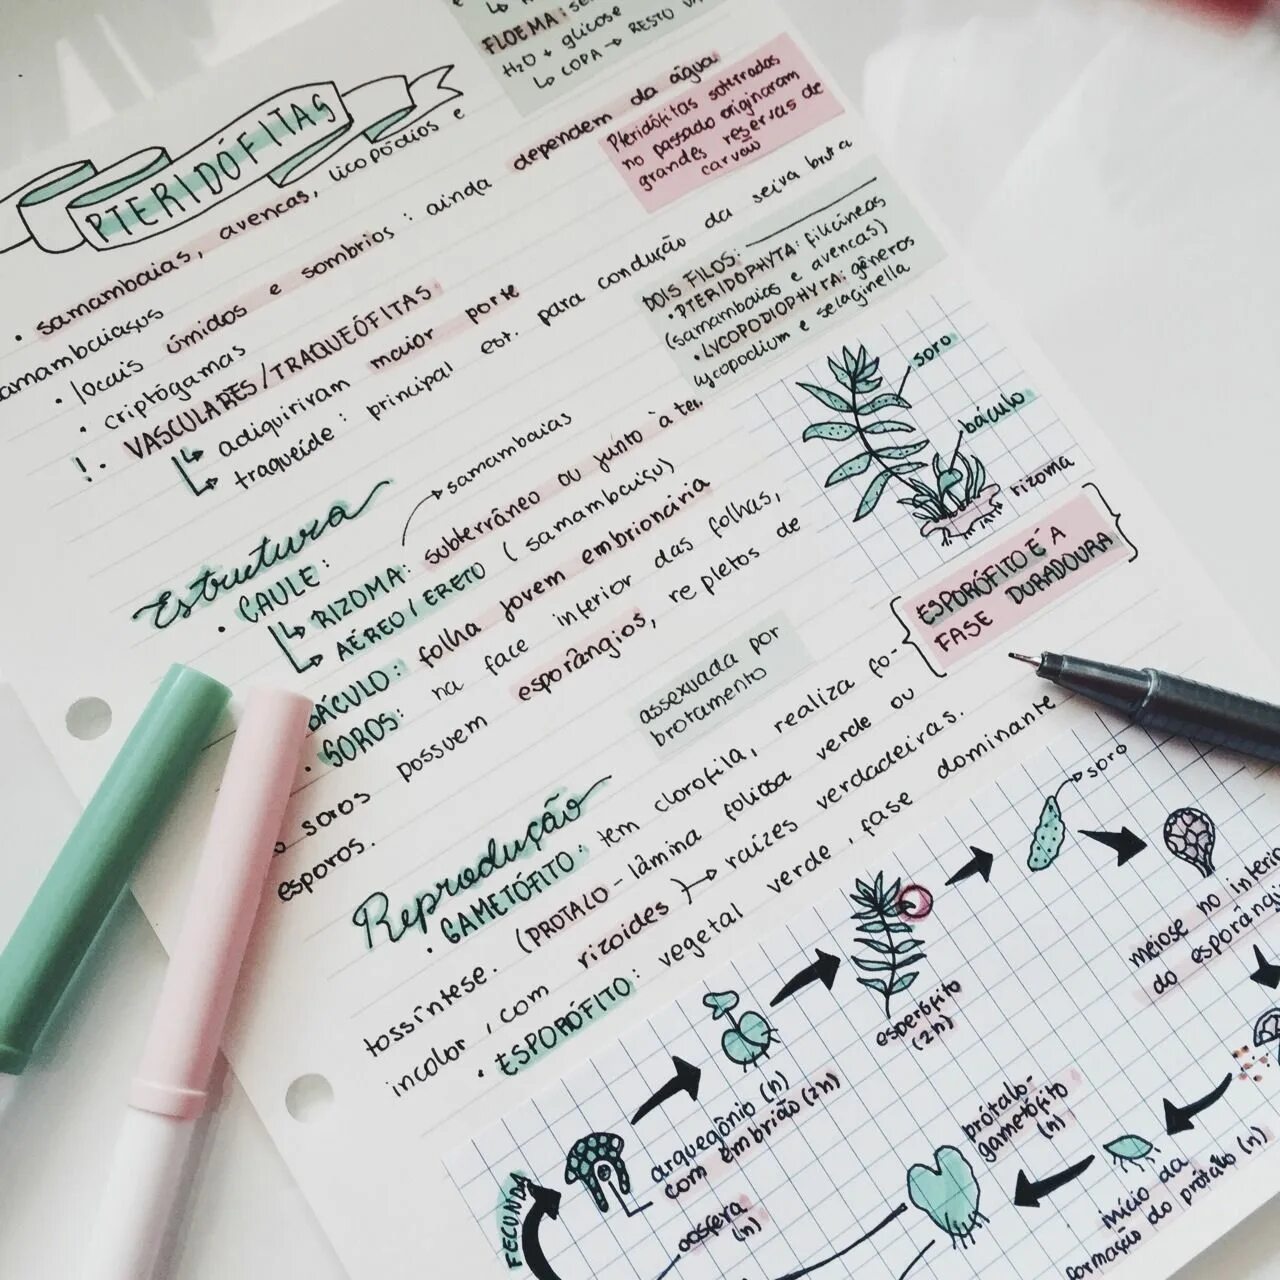 FLOEMA:
H₂O + glicose
↳ COPA → RESTO
PTERIDÓFITAS
• samambaias, avencas, licopódios e
samambaiaçus
• locais úmidos e sombrios: ainda dependem da água
• criptógamas
!• VASCULARES/TRAQUEÓFITAS.
↳ adiquiriram maior porte
↳ traqueíde: principal est. para condução da seiva bruta
Pteridófitas soterradas
no passado originaram
grandes reservas de
carvão
DOIS FILOS:
• PTERIDOPHYTA: filicíneas
(samambaias e avencas)
• LYCOPODIOPHYTA: gêneros
lycopodium e selaginella
soro
báculo
rizoma
Estrutura
• CAULE:
→ samambaias
↳ RIZOMA: subterrâneo ou junto à ter.
↳ AÉREO/ERETO (samambaiaçu)
BÁCULO: folha jovem embrionária
• SOROS: na face inferior das folhas,
soros possuem esporângios, repletos de
esporos.
ESPORÓFITO É A
FASE DURADOURA
assexuada por
brotamento
Reprodução
• GAMETÓFITO: tem clorofila, realiza fo-
tossíntese. (PROTALO - lâmina foliosa verde ou
incolor, com rizoides) → raízes verdadeiras.
• ESPORÓFITO: vegetal verde, fase dominante
→ soro
meiose no interio
do esporângi
esporófito
(2n)
arquegônio (n)
com embrião (2n)
prótalo-
gametófito
(n)
início da
formação do prótalo (n)
oosfera
(n)
FECUNDA